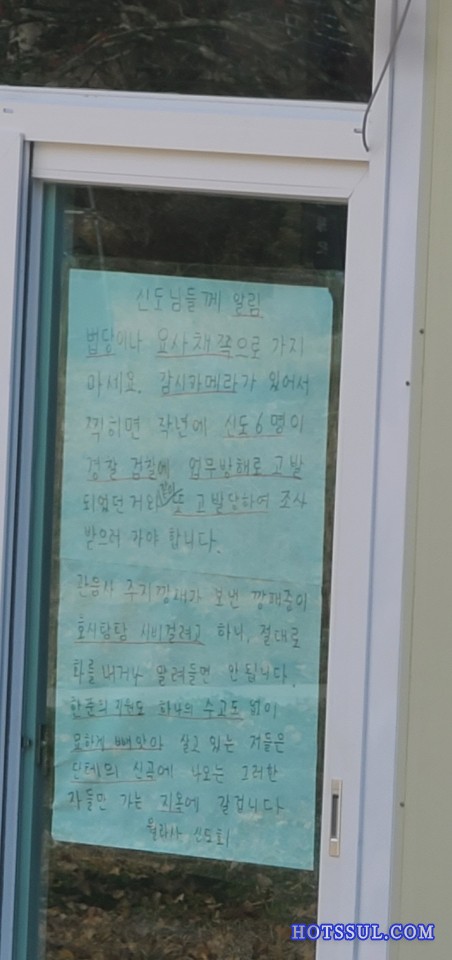 신도님들께 알림
법당이나 요사채쪽으로 가지
마세요. 감시카메라가 있어서
찍히면 작년에 신도6명이
경찰 검찰에 업무방해로 고발
되었던 거와 같이 또 고발당하여 조사
받으러 가야 합니다.
관음사 주지낌새가 보낸 깡패중이
호시탐탐 시비걸려고 하니, 절대로
화를 내거나 말려들면 안됩니다.
한푼의 지원도 하나의 수고도 없이
묘하게 빼앗아 살고 있는 저들은
단테의 신곡에 나오는 그러한
자들만 가는 지옥에 갈겁니다
신도회
HOTSSUL.COM